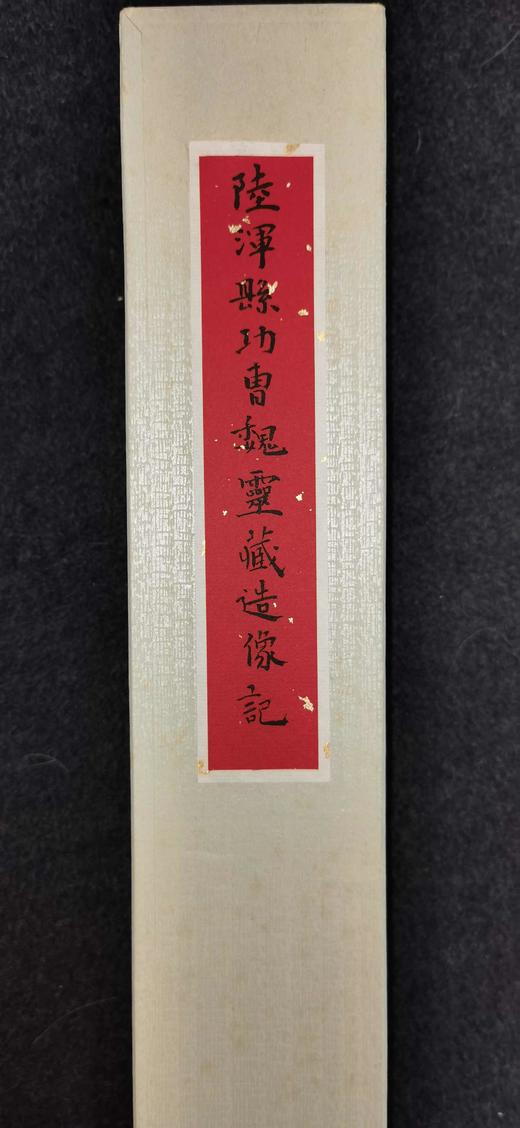 陸渾縣功曹魏靈藏造像記